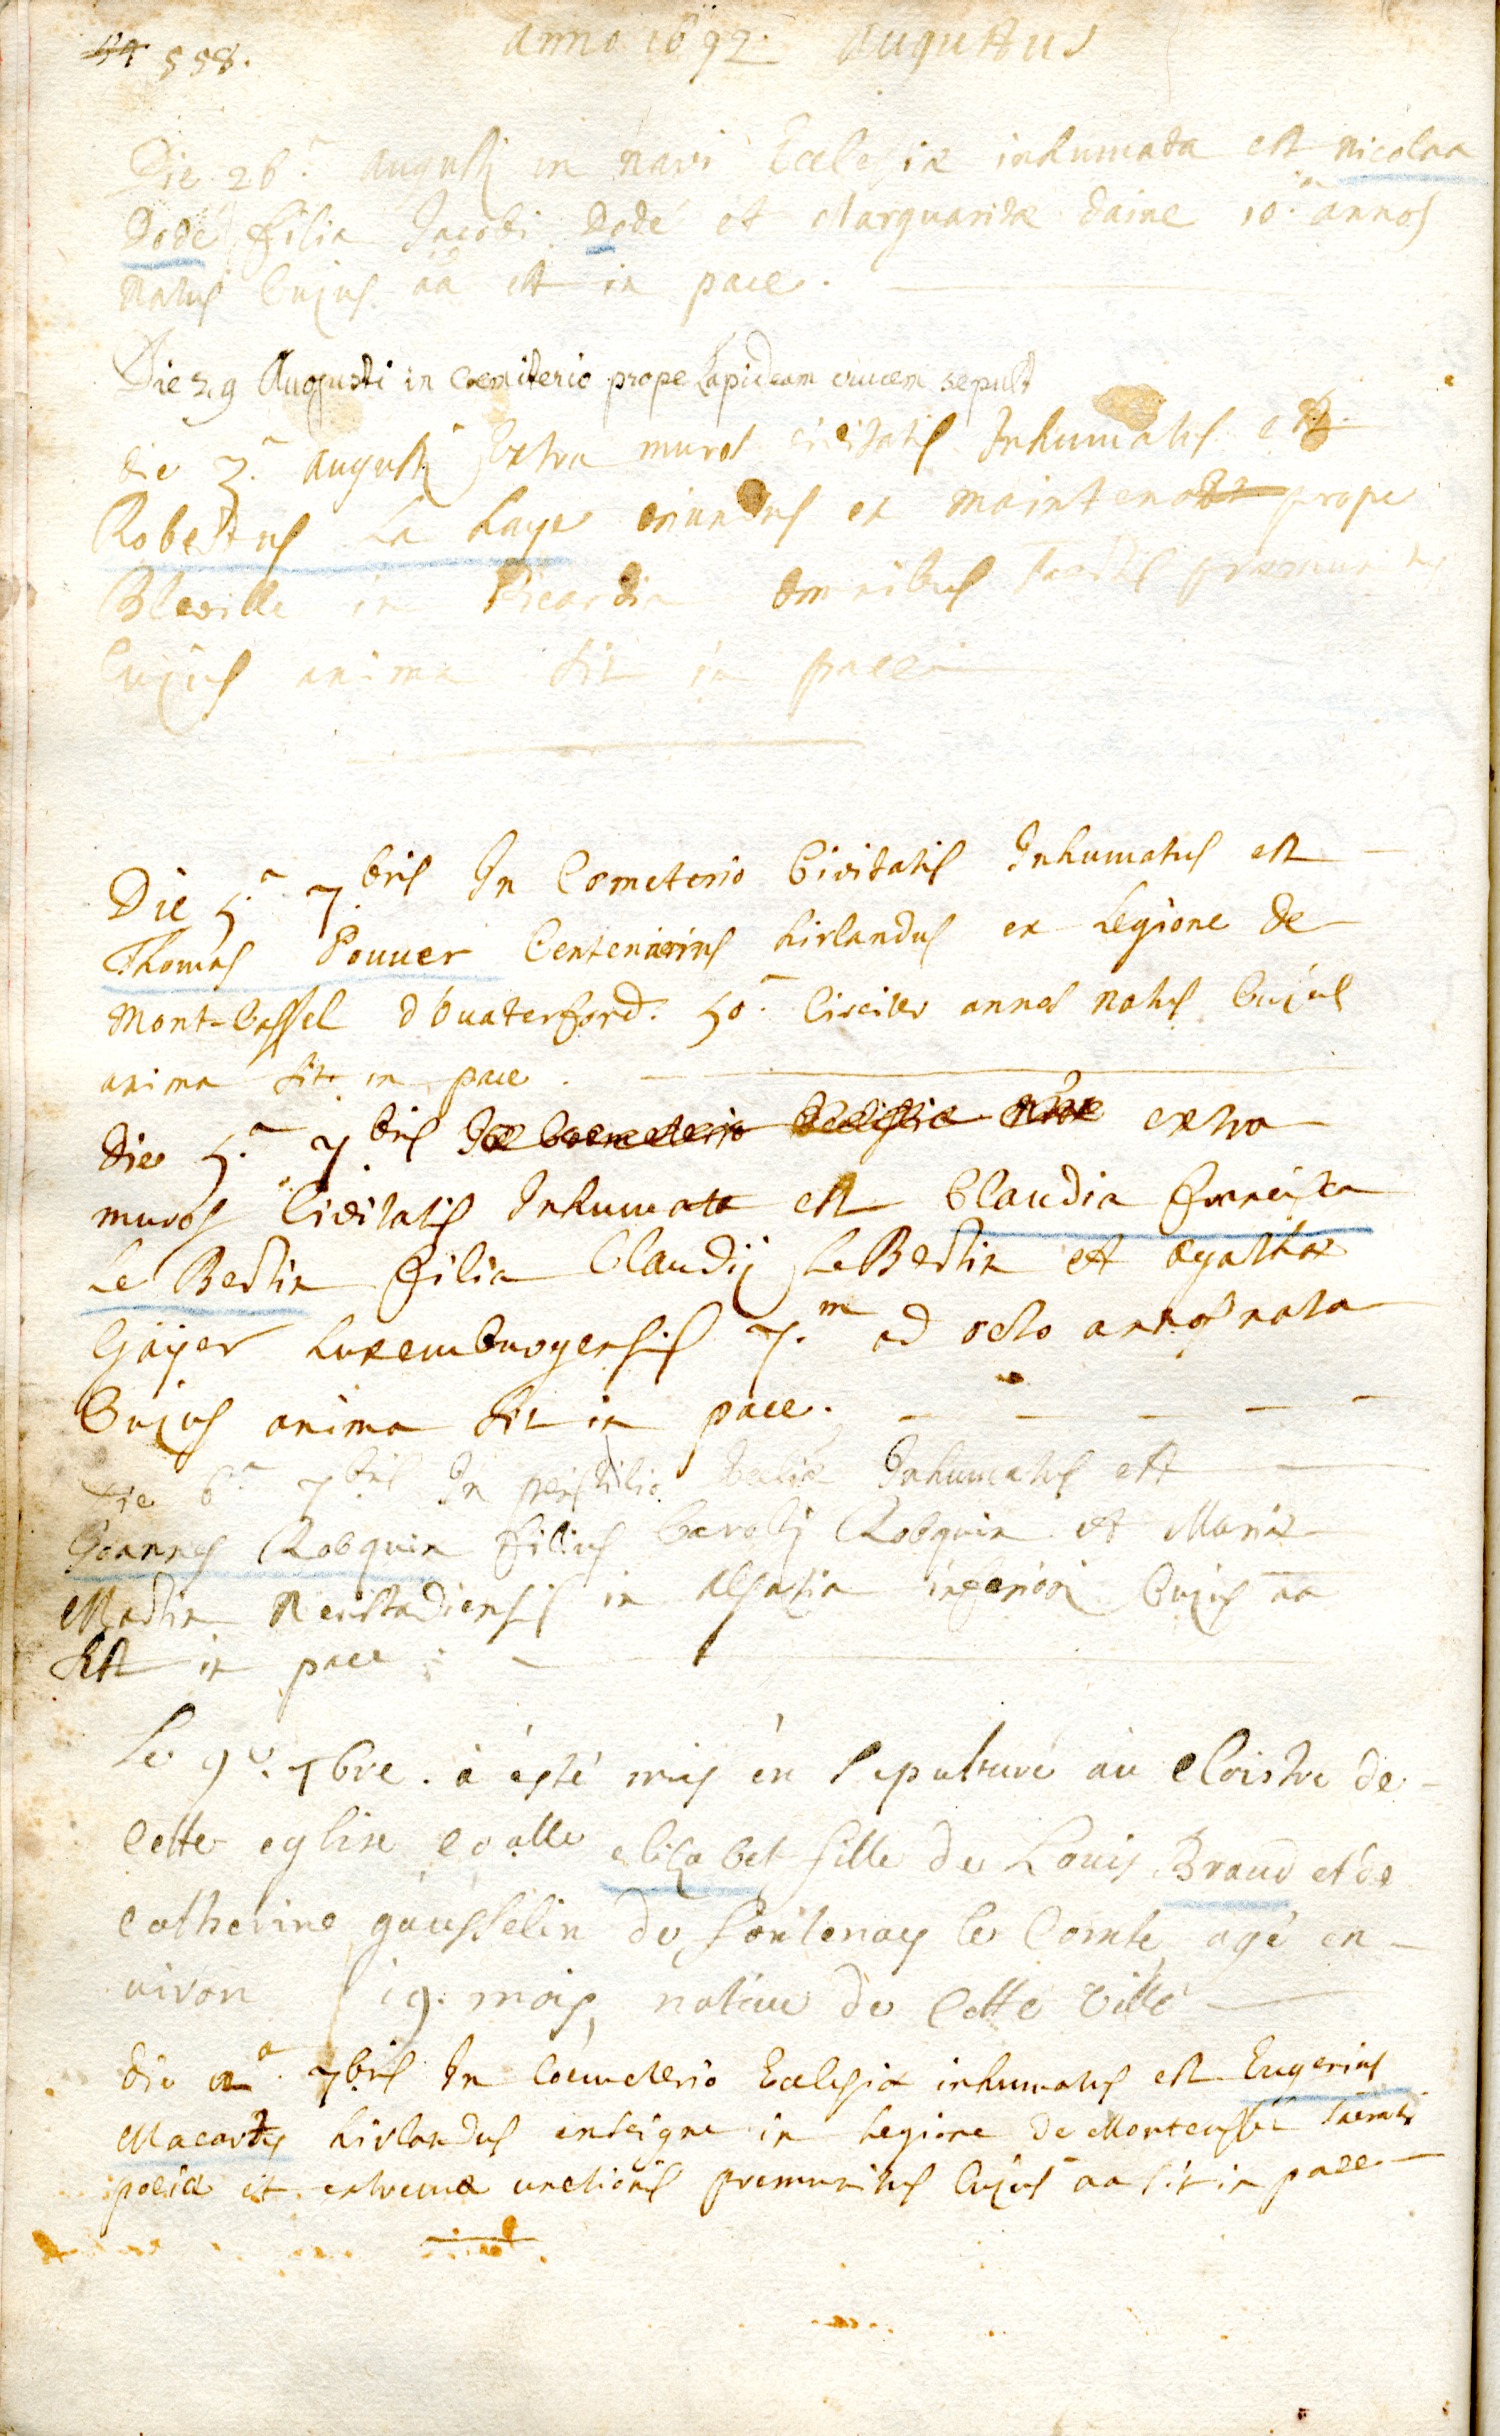 558. anno 1692 augustus
Die 26.a augusti in navi Ecclesiæ inhumata est nicolaa
Dodé filia Jacobi Dodé et Marguaritæ daine 10. annos
natus Cujus aã est in pace.
Die 29 Augusti in coemiterio prope Lapideam crucem sepult
die 3.a augusti Extra muros civitatis Inhumatus est
Robertus La haye oriundus ex maintenor prope
Bleville in Picardia omnibus
Cujus anima sit in pace
Die 5.a 7.bris In Cometerio Civitatis Inhumatus est
Thomas Pouuer Centenarius hirlandus ex Legione de
Mont-Cassel d'vuaterford. 50.a Circiter annos natus Cujus
anima sit in pace.
die 5.a 7.bris extra
muros Civitatis Inhumata est Claudia francisca
Le Bertin filia Claudij Le Bertin et agathæ
Gäyer Luxemburgensis 7.m ad octo annos nata
Cujus anima sit in pace.
Die 6.a 7.bris In peristilio Inhumatus est
Joannes Robquin filius Caroli Robquin et Mariæ
Martin Neustadiensis in alsatia inferiori Cujus aã
sit in pace
Le 9.e 7bre. à ésté mis én sepulture aú Cloistre de
Cette eglise elizabet fille de Louis Braud et de
Catherine gáusselin de fontenay le Comte, agé en-
uiron 19. mois, natiue de Cette ville
die 7.bris In Coemeterio Ecclesiæ inhumatus est Eugenius
Macarty hirlandus enseigne in Legione de
et extremæ unctionis premunitus Cujus aã sit in pace